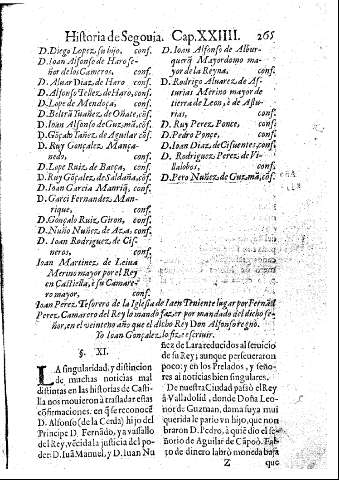 Historia de Segouia. Cap. XXIIII. 265
D. Diego Lopez, su hijo, conf.
D. Ioan Alfonso de Haro señor
de los Cameros, conf.
D. Aluar Diaz de Haro
D. Alfonso Tellez de Haro, conf.
D. Lope de Mendoça, conf.
D. Beltrã Iuañez de Oñate, conf.
D. Ioan Alfonso de Guzmã, conf.
D. Gõçalo Yañez de Aguilar cõf.
D. Ruy Gonçalez, Mançanedo,
conf.
D. Lope Ruiz de Baeça, conf.
D. Ruy Gõçalez, de Saldaña, cõf.
D. Ioan Garcia Manriq̃, conf.
D. Garci Fernandez Manrique,
conf.
D. Gonçalo Ruiz, Giron, conf.
D. Nuño Nuñez de Aza, conf.
D. Ioan Rodriguez de Cisneros,
conf.
Ioan Martinez de Leiua
Merino mayor por el Rey
en Castiella, è su Camarero
mayor, conf.
D. Ioan Alfonso de Alburquerq̃
Mayordomo mayor
de la Reyna, conf.
D. Rodrigo Aluarez de Asturias
Merino mayor de
tierra de Leon, è de Asturias,
conf.
D. Ruy Perez, Ponce, conf.
D. Pedro Ponçe, conf.
D. Ioan Diaz de Cifuentes, conf.
D. Rodriguez Perez de Villalobos,
conf.
D. Pero Nuñez de Guzmã, cõf.
Ioan Perez Tesorero de la Iglesia de Iaen Teniente lugar por Fernãd
Perez, Camarero del Rey lo mando fazer por mandado del dicho señor,
en el veinteno año que el dicho Rey Don Alfonso regnò.
Yo Ioan Gonçalez lo fize escriuir.
§. XI.
LA singularidad, y distincion
de muchas noticias mal
distintas en las historias de Castilla
nos mouieron à trasladar estas
cõfirmaciones. en q̃ se reconocẽ
D. Alfonso (de la Cerda) hijo del
Principe D. Fernãdo, ya vassallo
del Rey, vẽcida la justicia del poder.
D. Iuã Manuel, y D. Iuan Nuñez
de Lara reducidos al seruicio
de su Rey; aunque perseueraron
poco; y en los Prelados, y señores
ai noticias bien singulares.
De nuestra Ciudad passò el Rey
à Valladolid, donde Doña Leonor
de Guzman, dama suya mui
querida le pario vn hijo, que nonbraron
D. Pedro, à quiẽ dio el señorio
de Aguilar de Cãpoò. Falto
de dinero labrò moneda baja
Z que